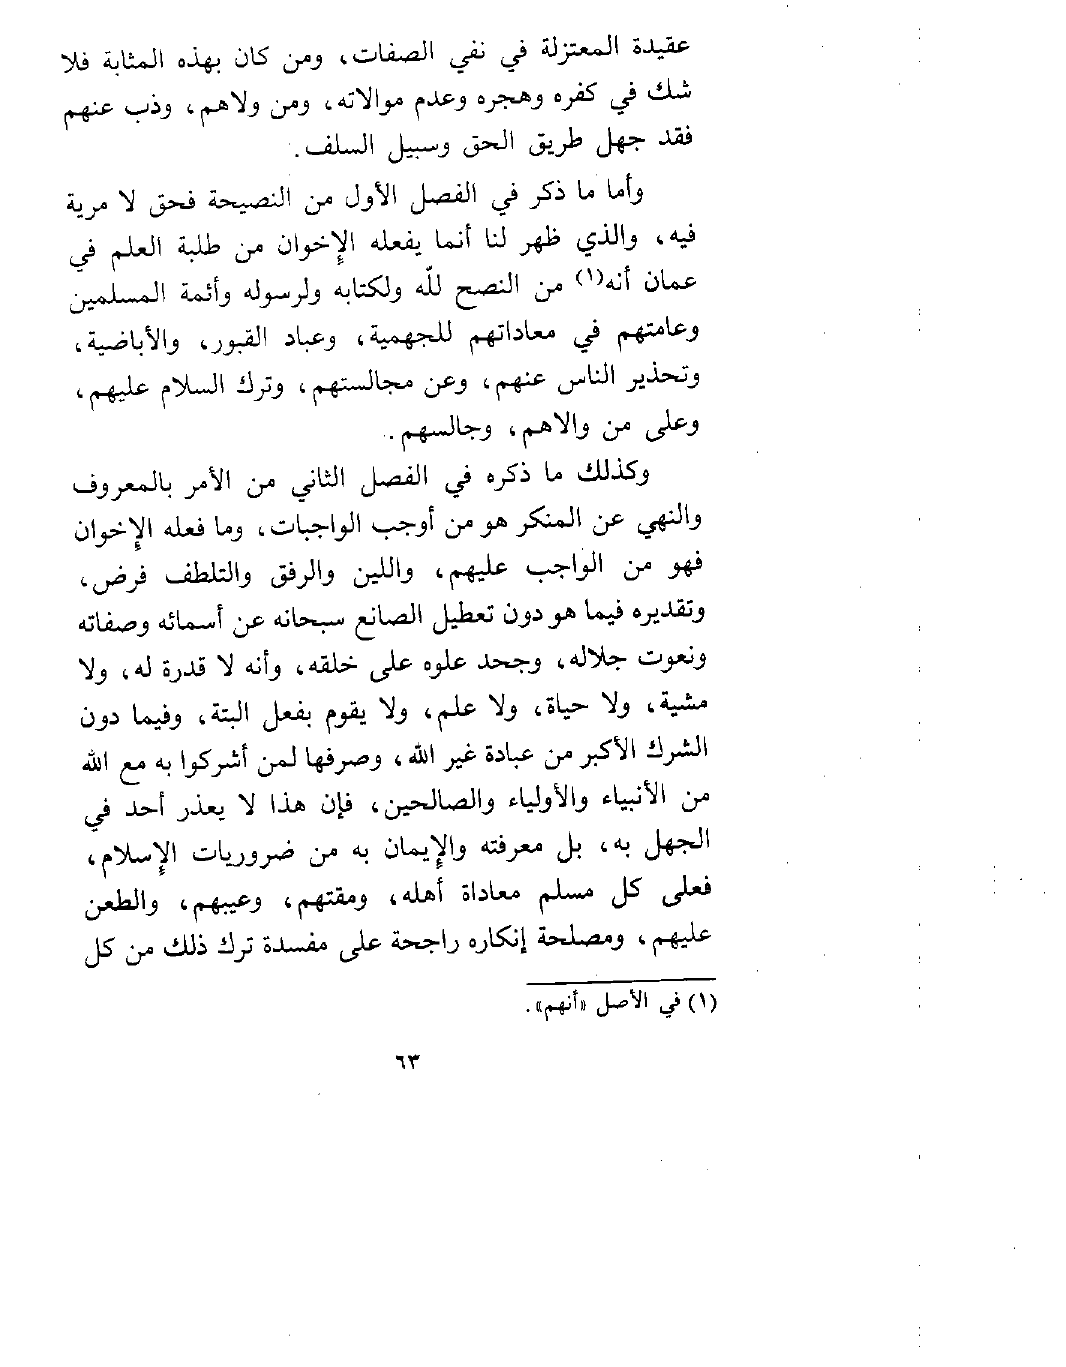 عقيدة المعتزلة في نفي الصفات، ومن كان بهذه المثابة فلا
شك في كفره وهجره وعدم موالاته، ومن ولاهم، وذب عنهم
فقد جهل طريق الحق وسبيل السلف.
وأما ما ذكر في الفصل الأول من النصيحة فحق لا مرية
فيه، والذي ظهر لنا أنما يفعله الإخوان من طلبة العلم في
عمان أنه(١) من النصح للّه ولكتابه ولرسوله وأئمة المسلمين
وعامتهم في معاداتهم للجهمية، وعباد القبور، والأباضية،
وتحذير الناس عنهم، وعن مجالستهم، وترك السلام عليهم،
وعلى من والاهم، وجالسهم.
وكذلك ما ذكره في الفصل الثاني من الأمر بالمعروف
والنهي عن المنكر هو من أوجب الواجبات، وما فعله الإخوان
فهو من الواجب عليهم، واللين والرفق والتلطف فرض،
وتقديره فيما هو دون تعطيل الصانع سبحانه عن أسمائه وصفاته
ونعوت جلاله، وجحد علوه على خلقه، وأنه لا قدرة له، ولا
مشية، ولا حياة، ولا علم، ولا يقوم بفعل البتة، وفيما دون
الشرك الأكبر من عبادة غير الله، وصرفها لمن أشركوا به مع الله
من الأنبياء والأولياء والصالحين، فإن هذا لا يعذر أحد في
الجهل به، بل معرفته والإيمان به من ضروريات الإسلام،
فعلى كل مسلم معاداة أهله، ومقتهم، وعيبهم، والطعن
عليهم، ومصلحة إنكاره راجحة على مفسدة ترك ذلك من كل
(١) في الأصل «أنهم».
٦٣